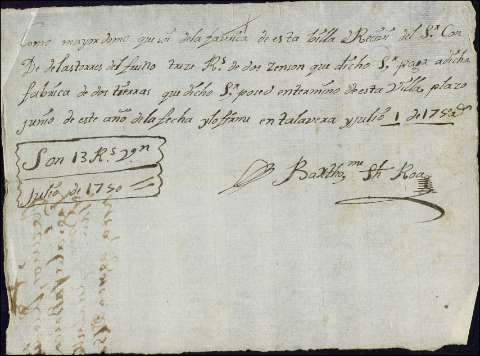 Como mayordomo que soi de la fabrica de esta Villa Reciui del Sr Con
De de las torres del fruito treze Rs de dos zensos que dicho Sr paga adicha
fabrica de dos tierras que dicho Sr posee entermino de esta Villa plazo
junio de este año de la fecha y lo firme en talavera y julio 1 de 1750
Son 13 Rs Vn
Julio de 1750
Barthme Roa